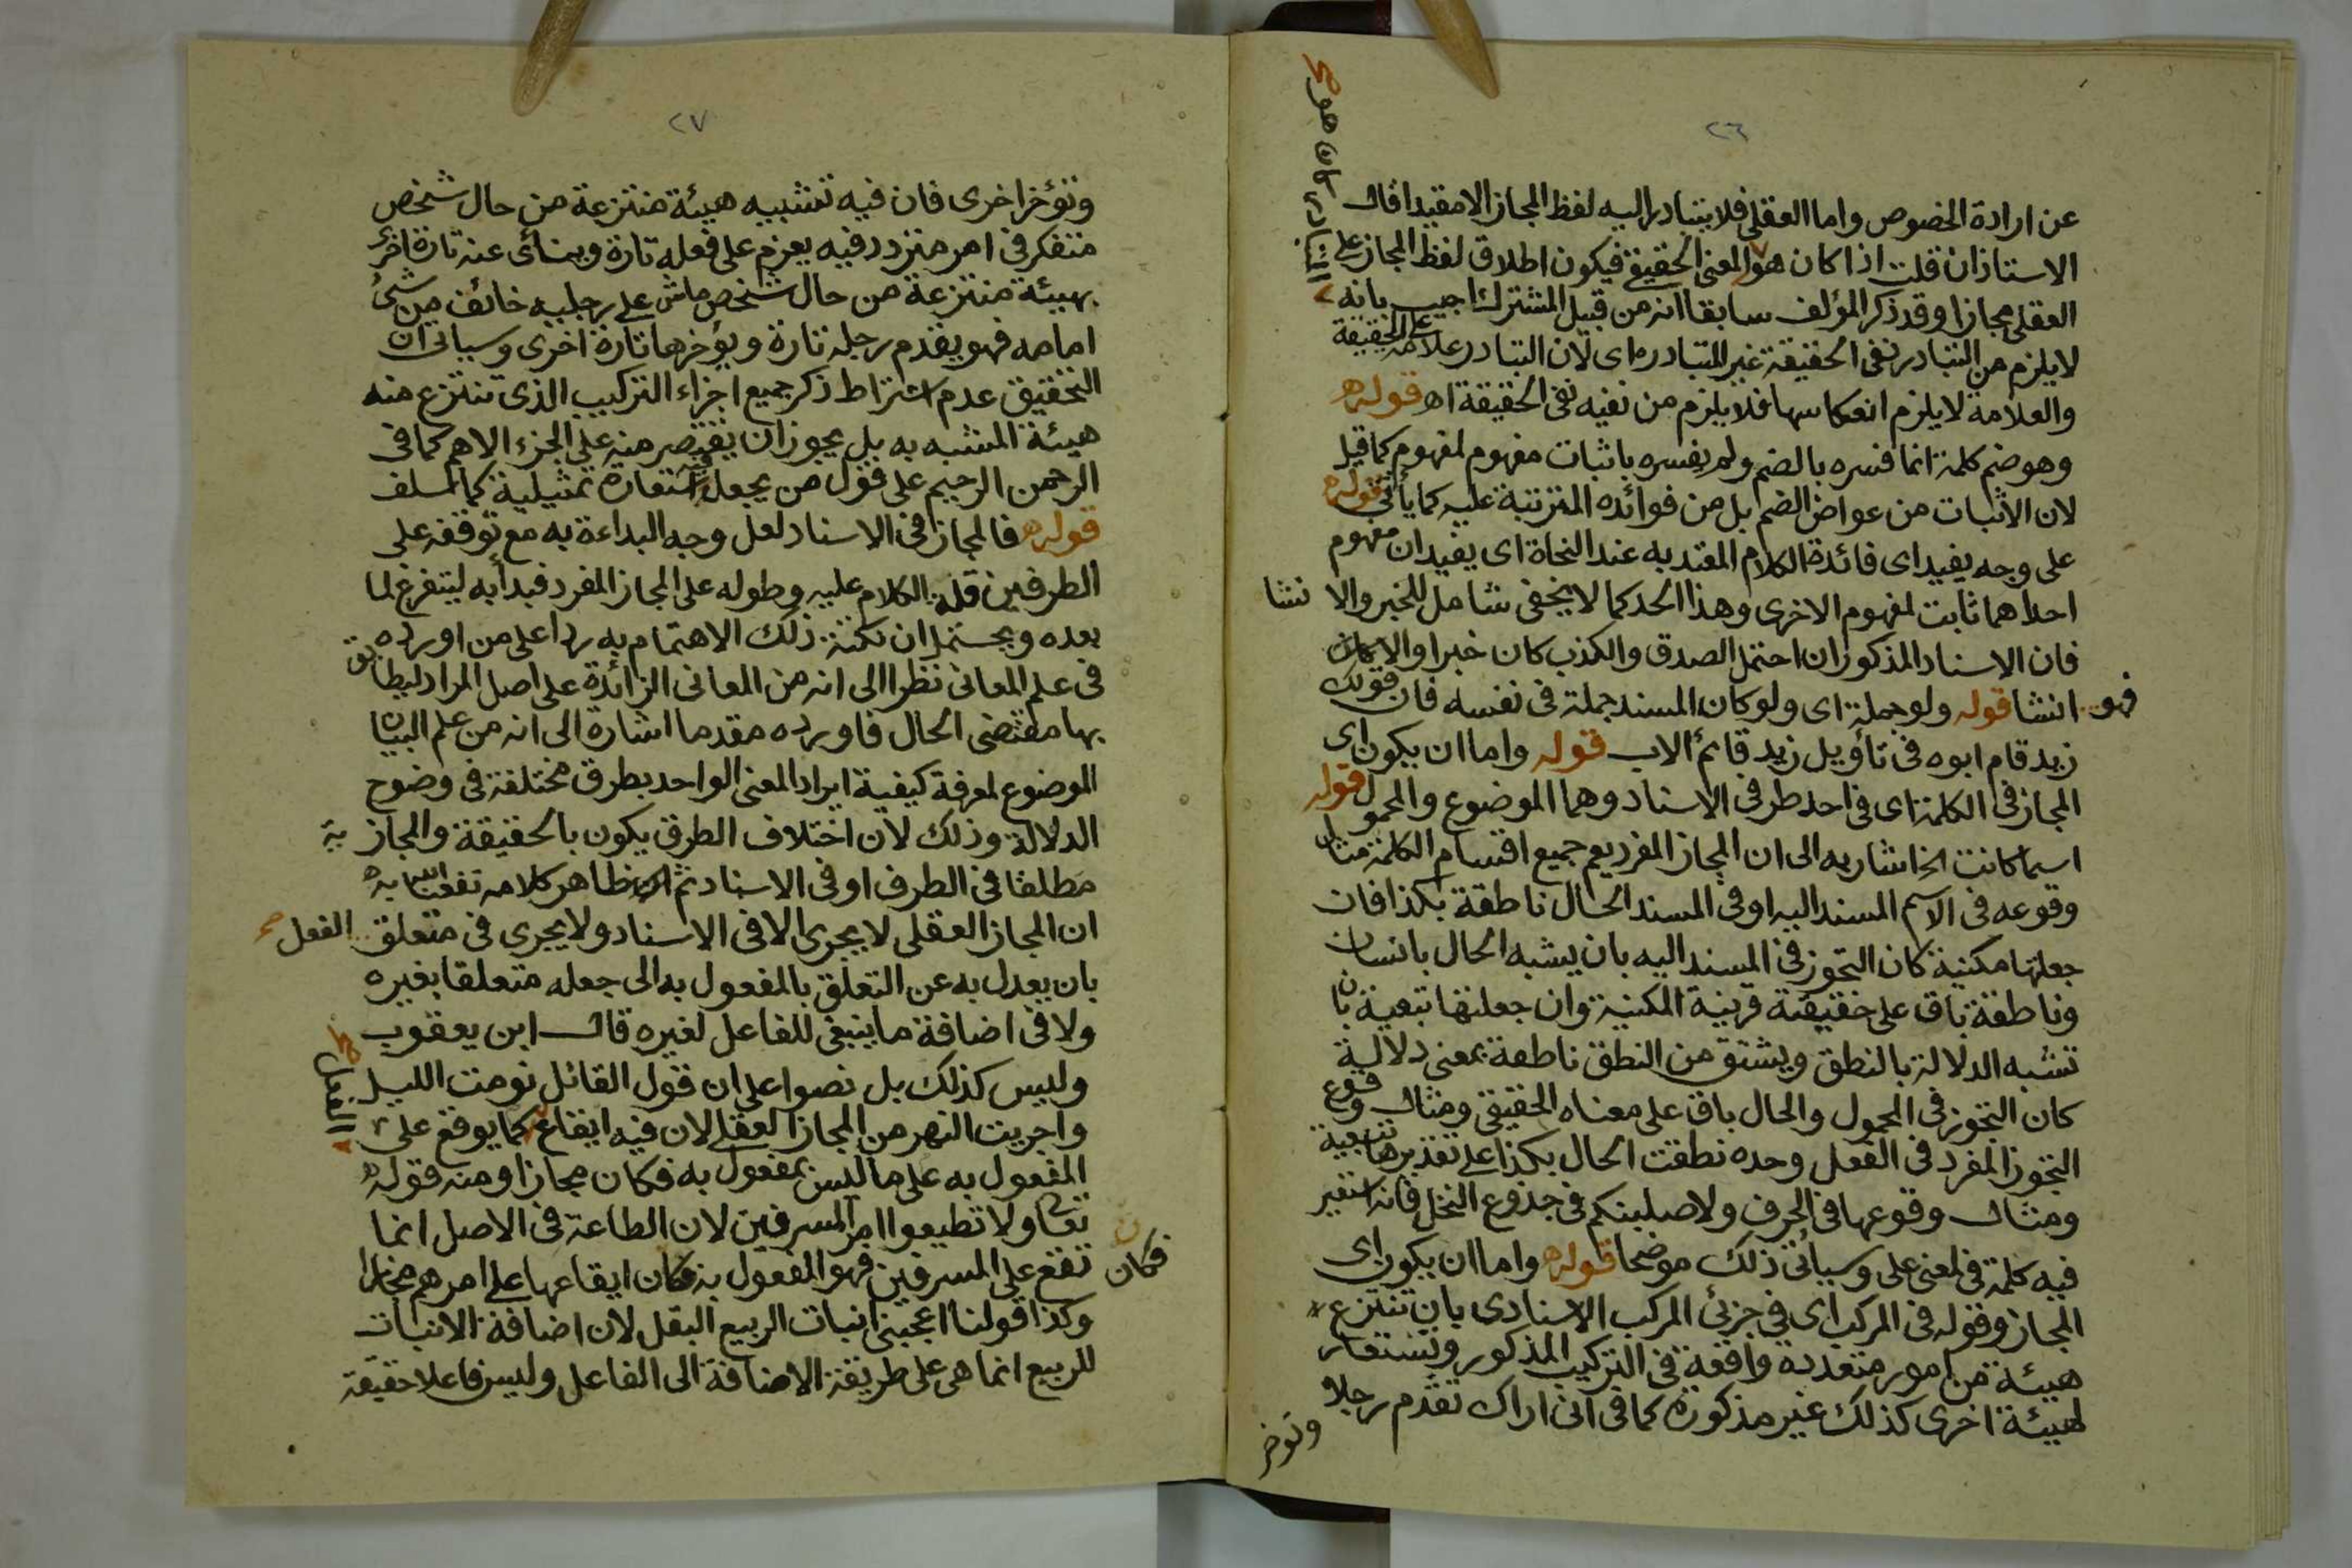 ٢٦
عن ارادة الخصوص واما العقلي فلا يتبادر اليه لفظ المجاز الا مقيدا قال
الاستاذ ان قلت اذا كان هو المعنى الحقيقي فيكون اطلاق لفظ المجاز على
المتبادر كان هو صح
العقلي مجازا وقد ذكر المؤلف سابقا انه من قبيل المشترك اجيب بانه
لا يلزم من التبادر نفى الحقيقة غير المتبادر اى لان التبادر علامة على الحقيقة
والعلامة لا يلزم انعكاسها فلا يلزم من نفيه نفى الحقيقة اه قوله
وهو ضم كلمة انما فسره بالضم ولم يفسره باثبات مفهوم لمفهوم كما قيل
لان الاثبات من عوارض الضم بل من فوائده المترتبة عليه كما يأتى قوله
على وجه يفيد اى فائدة الكلام المعتد به عند النحاة اى يفيد ان مفهوم
احداهما ثابت لمفهوم الاخرى وهذا الحد كما لا يخفى شامل للخبر والا نشا
فان الاسناد المذكور ان احتمل الصدق والكذب كان خبرا والا كان
فهو انشا قوله ولو جملة اى ولو كان المسند جملة فى نفسه فان قولك
زيد قام ابوه فى تأويل زيد قائم الاب قوله واما ان يكون اى
المجاز فى الكلمة اى فى احد طرفى الاسناد وهما الموضوع والمحمول قوله
اسما كانت الخ اشار به الى ان المجاز المفرد يعم جميع اقسام الكلمة مثال
وقوعه فى الاسم المسند اليه او فى المسند الحال ناطقة بكذا فان
جعلتها مكنية كان التجوز فى المسند اليه بان يشبه الحال بانسان
وناطقة باق على حقيقته قرينة المكنية وان جعلتها تبعية بان
تشبه الدلالة بالنطق ويشتق من النطق ناطقة بمعنى دلالية
كان التجوز فى المحمول والحال باق على معناه الحقيقي ومثال وقوع
التجوز المفرد فى الفعل وحده نطقت الحال بكذا على تقديرها تبعية
ومثال وقوعها فى الحرف ولاصلبنكم فى جذوع النخل فانه استعير
فيه كلمة فى لمعنى على وسيأتى ذلك موضحا قوله واما ان يكون اى
المجاز وقوله فى المركب اى فى جزئى المركب الاسنادى بان تنتزع
هيئة من امور متعددة واقعة فى التركيب المذكور وتستعار
لهيئة اخرى كذلك غير مذكورة كما فى انى اراك تقدم رجلا
وتوخر
٢٧
وتؤخر اخرى فان فيه تشبيه هيئة منتزعة من حال شخص
متفكر فى امر متردد فيه يعزم على فعله تارة ويناى عنه تارة اخرى
بهيئة منتزعة من حال شخص ماش على رجليه خائف من شئ
امامه فهو يقدم رجله تارة ويؤخرها تارة اخرى وسياتى ان
التحقيق عدم اشتراط ذكر جميع اجزاء التركيب الذى تنتزع منه
هيئة المشبه به بل يجوز ان يقتصر منه على الجزء الاهم كما فى
الرحمن الرحيم على قول من يجعل فيه استعارة تمثيلية كما سلف
قوله فالمجاز فى الاسناد لعل وجه البداءة به مع توقفه على
الطرفين قلة الكلام عليه وطوله على المجاز المفرد فبدأ به ليتفرغ لما
بعده ويحتمل ان نكتة ذلك الاهتمام به ردا على من اورده
فى علم المعانى نظرا الى انه من المعانى الزائدة على اصل المراد ليطابق
بها مقتضى الحال فاورده مقدما اشارة الى انه من علم البيان
الموضوع لمعرفة كيفية ايراد المعنى الواحد بطرق مختلفة فى وضوح
الدلالة وذلك لان اختلاف الطرق يكون بالحقيقة والمجاز
مطلقا فى الطرف او فى الاسناد ثم ان ظاهر كلامه
ان المجاز العقلى لا يجرى الا فى الاسناد ولا يجرى فى متعلق الفعل
بان يعدل به عن التعلق بالمفعول به الى جعله متعلقا بغيره
ولا فى اضافة ما ينبغى للفاعل لغيره قال ابن يعقوب
وليس كذلك بل نصوا على ان قول القائل نومت الليل
واجريت النهر من المجاز العقلى لان فيه ايقاع كما يوقع على
الفعل صح
المفعول به على ما ليس بمفعول به فكان مجازا ومنه قوله
تعا ولا تطيعوا امر المسرفين لان الطاعة فى الاصل انما
تقع على المسرفين فهو المفعول به فكان ايقاعها على امرهم مجازا
فكان
وكذا قولنا اعجبنى انبات الربيع البقل لان اضافة الانبات
للربيع انما هى على طريقة الاضافة الى الفاعل وليس فاعلا حقيقة